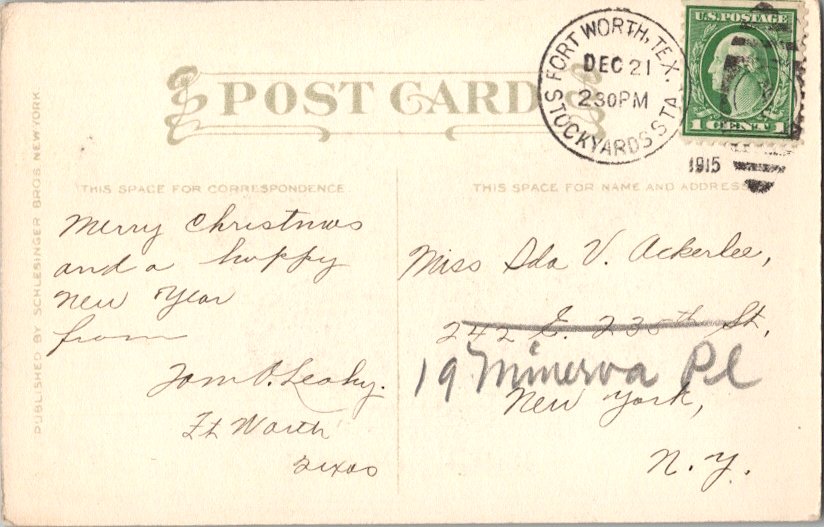 POST CARD
FORT WORTH, TEX.
DEC 21
230PM
STOCKYARDS STA.
1915
U.S. POSTAGE
1 CENT 1
PUBLISHED BY SCHLESINGER BROS. NEW YORK
THIS SPACE FOR CORRESPONDENCE
Merry Christmas
and a happy
new year
from
Tom O. Leahy.
Ft Worth
Texas
THIS SPACE FOR NAME AND ADDRESS
Miss Ida V. Ackerlee,
242 E. 235th St,
19 Minerva Pl
New York,
N.Y.